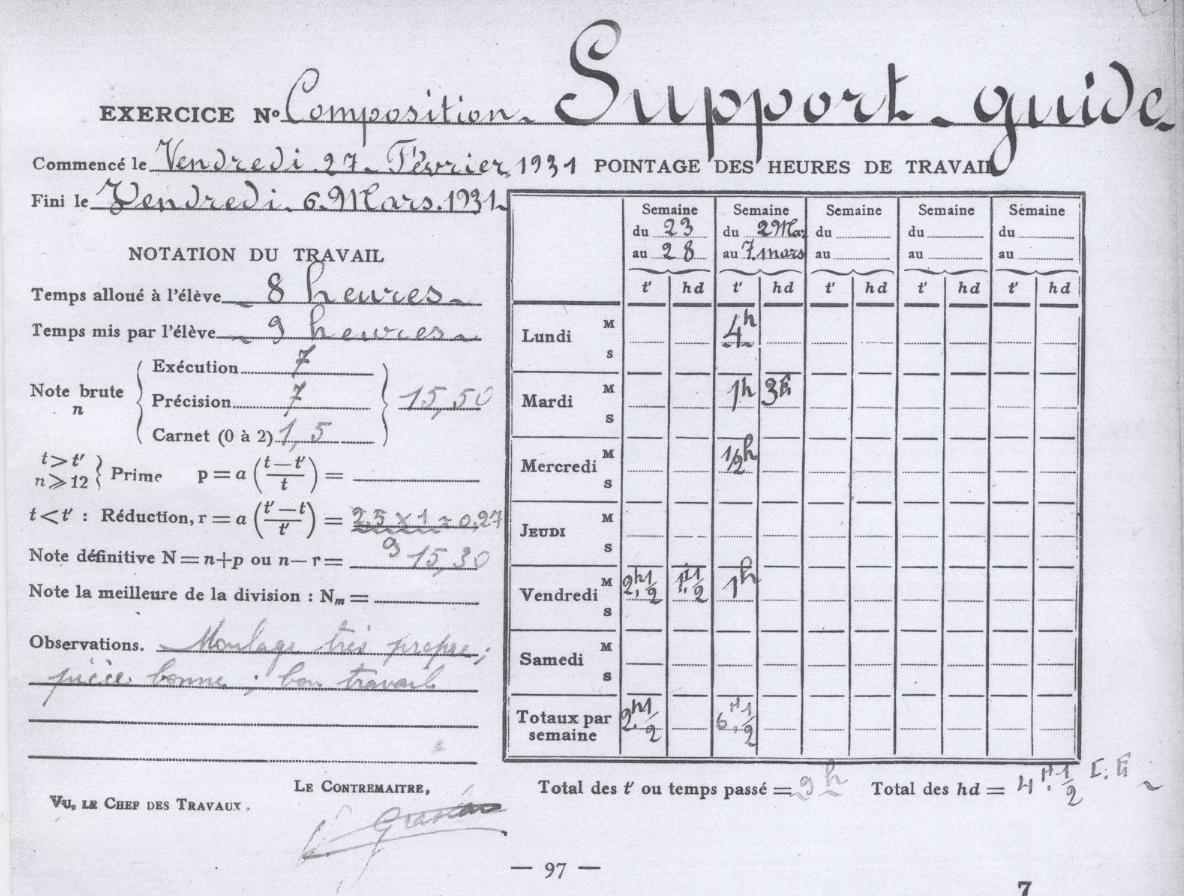 EXERCICE Nº Composition. Support-guide.
Commencé le Vendredi 27 Février 1931
Fini le Vendredi. 6. Mars. 1931
NOTATION DU TRAVAIL
Temps alloué à l'élève 8 heures
Temps mis par l'élève 9 heures
Note brute n
Exécution 7
Précision 7
Carnet (0 à 2) 1,5
15,50
t > t'
n ⩾ 12
Prime p = a (t – t' / t) =
t < t' : Réduction, r = a (t' – t / t') = 2,5 x 1 / 9 = 0,27
Note définitive N = n + p ou n – r = 15,30
Note la meilleure de la division : Nm =
Observations. Moulage très propre ;
pièce bonne ; bon travail
VU, LE CHEF DES TRAVAUX.
LE CONTREMAITRE,
POINTAGE DES HEURES DE TRAVAIL
Semaine Semaine Semaine Semaine Semaine
du 23 du 2 Mar du du du
au 28 au 7 mars au au au
t' hd t' hd t' hd t' hd t' hd
Lundi M 4h
S
Mardi M 1h
S
Mercredi M 1/2h
S
JEUDI M
S
Vendredi M 2h 1/2 1H 1/2 1h
S
Samedi M
S
Totaux par semaine 2h 1/2 6H 1/2
Total des t' ou temps passé = 9h Total des hd = 4H 1/2
— 97 —
7